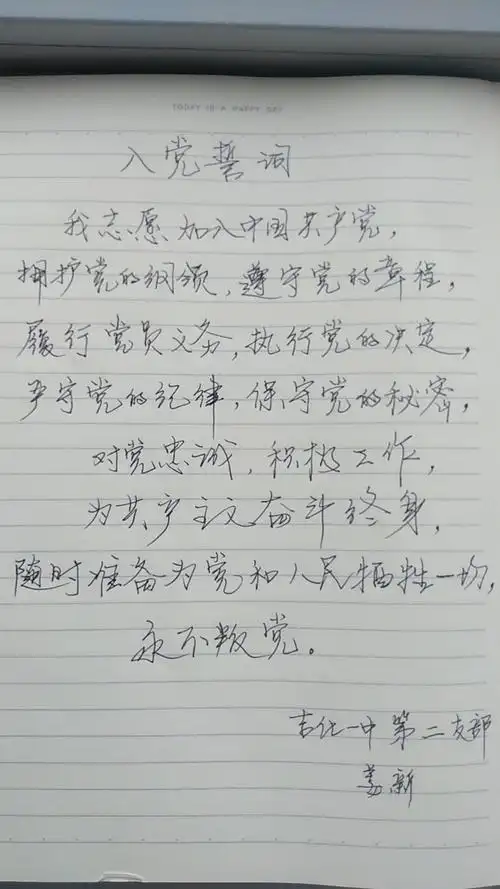 TODAY IS A HAPPY DAY
入党誓词
我志愿加入中国共产党，
拥护党的纲领，遵守党的章程，
履行党员义务，执行党的决定，
严守党的纪律，保守党的秘密，
对党忠诚，积极工作，
为共产主义奋斗终身，
随时准备为党和人民牺牲一切，
永不叛党。
吉化一中第二支部
姜新